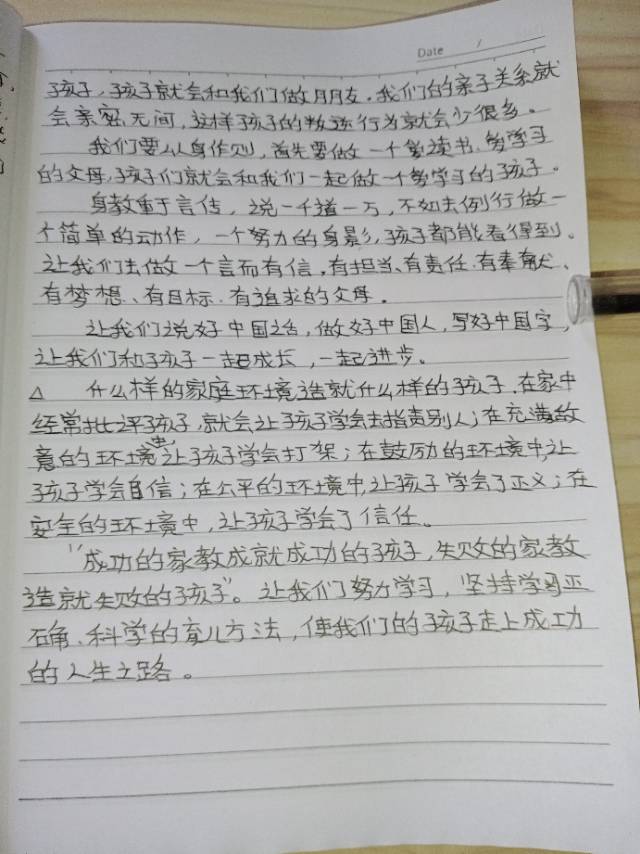 Date /
孩子，孩子就会和我们做朋友。我们的亲子关系就
会亲密无间，这样孩子的叛逆行为就会少很多。
我们要从身作则，首先要做一个爱读书、爱学习
的父母，孩子们就会和我们一起做一个爱学习的孩子。
身教重于言传，说一千道一万，不如去例行做一
个简单的动作，一个努力的身影，孩子都能看得到。
让我们去做一个言而有信、有担当、有责任、有奉献、
有梦想、有目标、有追求的父母。
让我们说好中国话，做好中国人，写好中国字，
让我们和孩子一起成长，一起进步。
△ 什么样的家庭环境造就什么样的孩子，在家中
经常批评孩子，就会让孩子学会去指责别人；在充满敌
意的环境中让孩子学会打架；在鼓励的环境中，让
孩子学会自信；在公平的环境中，让孩子学会了正义；在
安全的环境中，让孩子学会了信任。
“成功的家教成就成功的孩子，失败的家教
造就失败的孩子”。让我们努力学习，坚持学习正
确、科学的育儿方法，使我们的孩子走上成功
的人生之路。